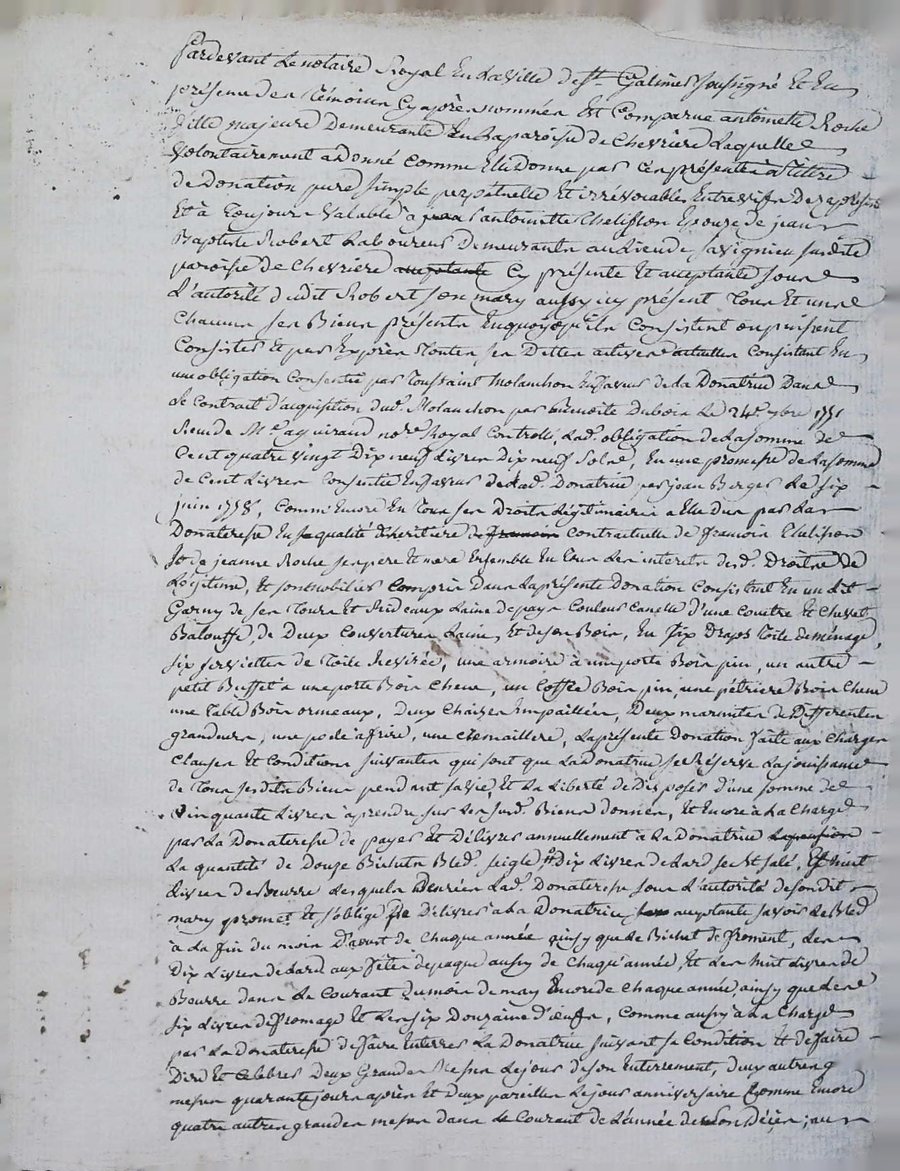 Pardevant Le notaire Royal En La Ville de St. Galmier soussigné Et En
présence des témoins Cy après nommés Est Comparue antoinette Roche
fille majeure Demeurante En La paroisse de Chevriere Laquelle
volontairement a donné comme Elle Donne par Ces présentes à titre
de Donation pure simple perpetuelle Et irrévocable Entre vifs De
Et à Toujours valable à antoinette Chelisson Epouze de jean
Baptiste Robert Laboureur demeurante au Lieu de savignieu susdite
paroisse De Chevriere acceptante Cy présente Et acceptante sous
L'autorité dudit Robert son mary aussy icy présent Tous Et uns
Chacuns ses Biens présents Enquoyqu'ils Consistent ou puissent
Consister Et par Exprès toutes ses Dettes actives actuelles Consistant En
une obligation Consentie par Toussaint Molanchon En faveur de La Donatrice Dans
Le Contrait d'acquisition dud. Molanchon par Benoite Dubois Le 24e. 1751
Reçu de Me. no.re Royal Controllé, Lad. obligation de La somme de
Cent quatre vingt Dix neuf Livres Dix neuf Sols, En une promesse de La somme
de Cent Livres Consentie En faveur de Lad. Donatrice par jean Berger Le six
juin 1758, Comm'Encore En Tous ses Droits Légitimaires a Elle dus par La
Donateresse En sa qualité d'heritiere de francois Contractuelle de francois Chelisson
Et de jeanne Roche ses pere et mere Ensemble En tous Les interets desd. Droits De
Légitime, Et sont mobiliers Compris Dans La présente Donation Consistent En un Lit
Garny de ses Tours Et Rideaux Laine de pays Couleur Canelle d'une Coutre Et Chevet
Balouffe, de Deux Couvertures Laine, Et de son Bois, En six Draps Toile de ménage,
six serviettes de Toile Revirée, une armoire à une porte Bois pin, un autre
petit Buffet a une porte Bois Chene, un Coffre Bois pin, une pétriere Bois Chene
une Table Bois ormeaux, Deux Chaizes Empaillées, Deux marmites de Differentes
grandeurs, une poele a frire, une Cremaillere, La présente Donation faite aux Charges
Clauses Et Conditions suivantes qui sont que La Donatrice se Réserve La jouissance
de Tous sesdits Biens pendant sa vie, Et La Liberté de Disposer d'une somme de
Cinquante Livres à prendre sur Les sud. Biens donnés, Et Encore à La Charge
par La Donateresse de payer Et Délivrer annuellement à La Donatrice La pension
La quantité de Douze Bichets Bled seigle Dix Livres de Lard sec Et salé, Et huit
Livres de Beurre Lesquels Denrées Lad. Donateresse sous L'autorité de sondit
mary promet Et s'oblige De Délivrer à La Donatrice acceptante savoir Le Bled
à La fin du mois D'aout de Chaque année ainsy que Le Bichet de froment, Les
Dix Livres de Lard aux fêtes de paque aussy de Chaqu'année, Et Les huit Livres De
Beurre dans Le Courant Du mois de may Encore de Chaque année, ainsy que Les
six Livres de fromage Et Les six Douzaine d'oeufs, Comme aussy à La Charge
par La donateresse de faire Enterrer La Donatrice suivant sa Condition Et de faire
Dire Et Celebrer Deux Grandes Messes Le jour de son Enterrement, deux autres
messes quarante jours après Et Deux pareilles Le jour anniversaire Comme Encore
quatre autres grandes messes dans Le Courant de L'année de son Décès; au